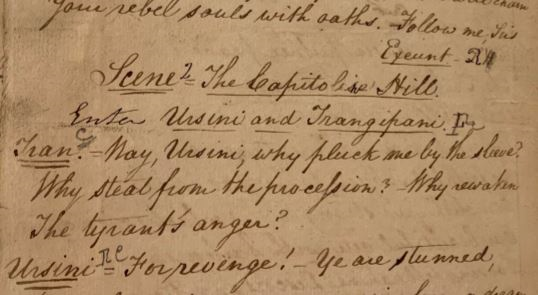 your rebel souls with oaths. Follow me, Sirs
Exeunt - RH
Scene 2 = The Capitoline Hill.
Enter Ursini and Frangipani.
Fran. - Nay, Ursini, why pluck me by the sleeve?
Why steal from the procession? - Why rewaken
The tyrant's anger?
Ursini = For revenge! - Ye are stunned,